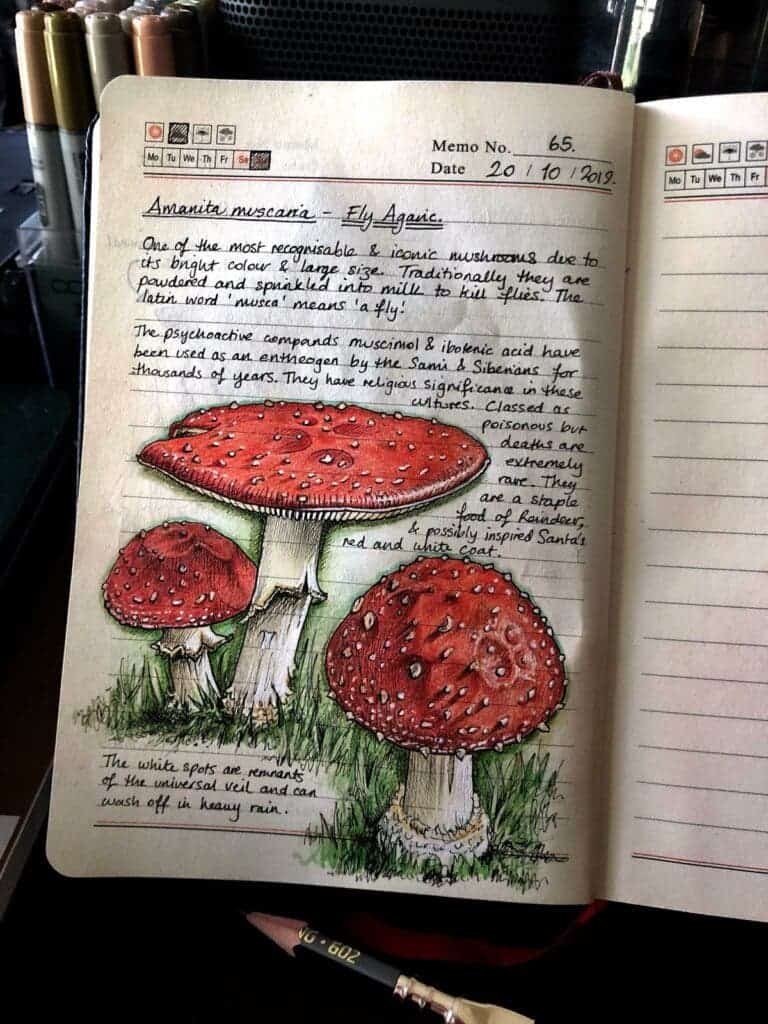 Memo No. 65.
Mo Tu We Th Fr Sa
Date 20 / 10 / 2019.
Amanita muscaria - Fly Agaric.
One of the most recognisable & iconic mushrooms due to
its bright colour & large size. Traditionally they are
powdered and sprinkled into milk to kill flies. The
latin word 'musca' means 'a fly'.
The psychoactive compounds muscimol & ibotenic acid have
been used as an entheogen by the Sami & Siberians for
thousands of years. They have religious significance in these
cultures. Classed as
poisonous but
deaths are
extremely
rare. They
are a staple
food of Reindeer,
& possibly inspired Santa's
red and white coat.
The white spots are remnants
of the universal veil and can
wash off in heavy rain.
Mo Tu We Th Fr
NG · 602